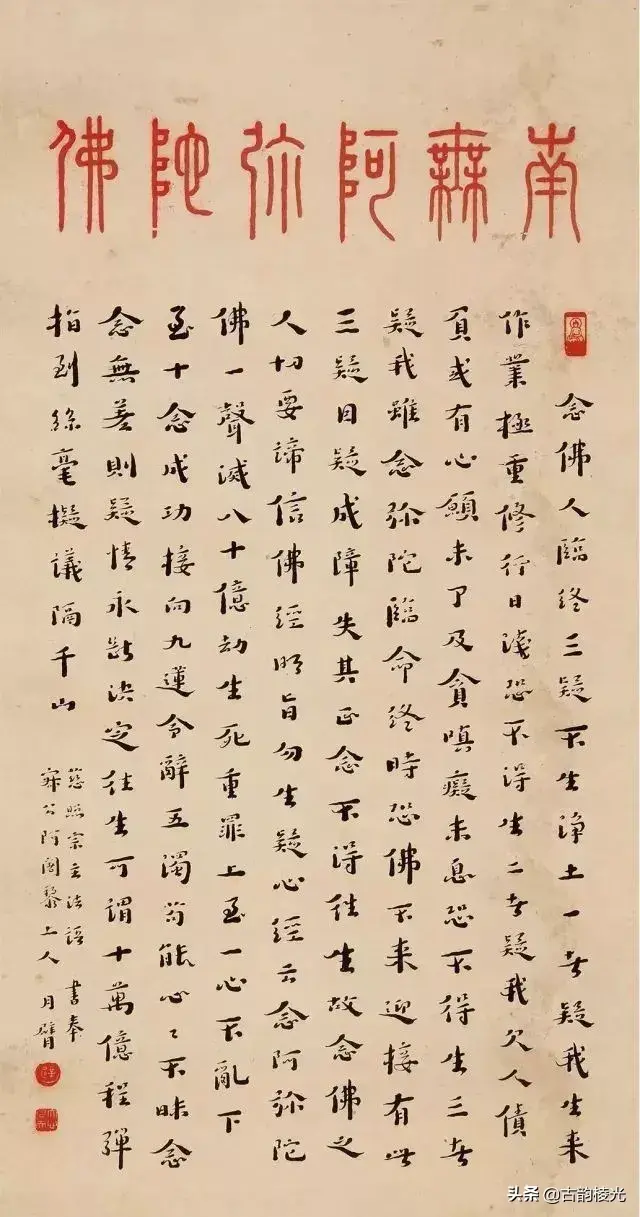 南無阿弥陀佛
念佛人臨終三疑不生淨土一者疑我生来
作業極重修行日淺恐不得生二者疑我欠人債
負或有心願未了及貪嗔癡未息恐不得生三者
疑我雖念弥陀臨命終時恐佛不来迎接有此
三疑因疑成障失其正念不得往生故念佛之
人切要諦信佛經明旨勿生疑心經云念阿弥陀
佛一聲滅八十億劫生死重罪上至一心不亂下
至十念成功接向九蓮令辭五濁苟能心〻不昧念
念無差則疑情永斷決定往生可謂十萬億程彈
指到絲毫擬議隔千山
慈照宗主法語 書奉
寂公阿闍黎上人 月臂
头条 @古韵棱光